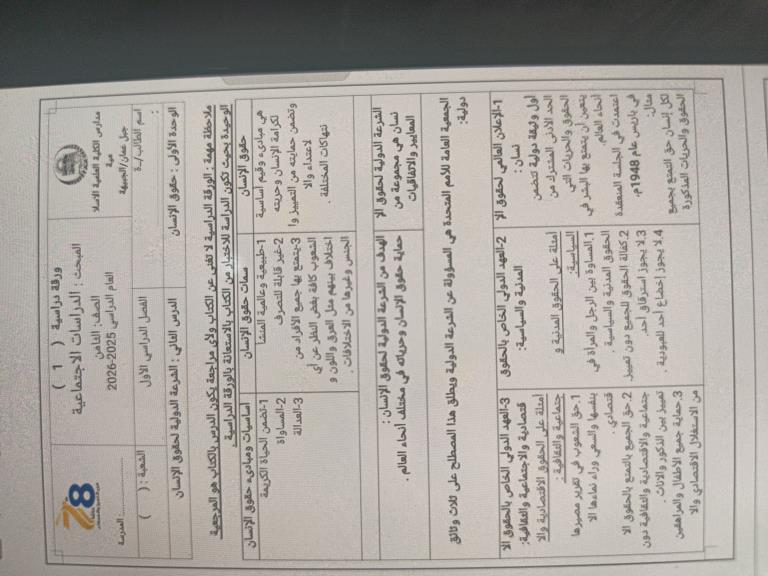 مدارس الكلية العلمية الاسلا
مية
جبل عمان/الجبيهة
ورقة دراسية ( 1 )
المبحث : الدراسات الاجتماعية
الصف: الثامن
العام الدراسي 2025-2026
78
المدرسة
اسم الطالب/ـة
:
الفصل الدراسي الأول
الشعبة : (
)
الوحدة الأولى : حقوق الإنسان
الدرس الثاني : الشرعة الدولية لحقوق الإنسان
ملاحظة مهمة : الورقة الدراسية لا تغني عن الكتاب ولأي مراجعة يكون الدرس بالكتاب هو المرجعية
الوحيدة بحيث تكون الدراسة للاختبار من الكتاب بالاستعانة بالورقة الدراسية .
حقوق الإنسان
هي مبادىء وقيم أساسية
وتضمن حمايته من التمييز وا
لكرامة الإنسان وحريته
لاعتداء والا
نتهاكات المختلفة .
سمات حقوق الإنسان
1-طبيعية وعالمية المنشأ
2-غير قابلة للتصرف
3-يتمتع بها جميع الأفراد من
الشعوب كافة بغض النظر عن أي
اختلاف بينهم مثل العرق واللون و
الجنس وغيرها من الاختلافات .
أساسيات ومبادىء حقوق الإنسان
1-تضمن الحياة الكريمة
2-المساواة
3-العدالة
الشرعة الدولية لحقوق الإ
نسان هي مجموعة من
المعايير والاتفاقيات
الهدف من الشرعة الدولية لحقوق الإنسان :
حماية حقوق الإنسان وحرياته في مختلف أنحاء العالم .
الجمعية العامة للأمم المتحدة هي المسؤولة عن الشرعة الدولية ويطلق هذا المصطلح على ثلاث وثائق
دولية:
1-الإعلان العالمي لحقوق الإ
نسان :
أول وثيقة دولية تتضمن
الحد الأدنى المشترك من
الحقوق والحريات التي
يتعين أن يتمتع بها البشر في
أنحاء العالم.
اعتمدت في الجلسة المنعقدة
في باريس عام 1948م.
مثال:
لكل إنسان حق التمتع بجميع
الحقوق والحريات المذكورة
2-العهد الدولي الخاص بالحقوق
المدنية والسياسية:
أمثلة على الحقوق المدنية و
السياسية:
1.المساواة بين الرجل والمرأة في
الحقوق المدنية والسياسية .
2.كفالة الحقوق للجميع دون تمييز
3.لا يجوز استرقاق أحد.
4.لا يجوز إخضاع أحد للعبودية .
3-العهد الدولي الخاص بالحقوق الا
قتصادية والاجتماعية والثقافية:
أمثلة على الحقوق الاقتصادية والا
جتماعية والثقافية :
1.حق الشعوب في تقرير مصيرها
بنفسها والسعي وراء نماءها الا
قتصادي.
2.حق الجميع بالتمتع بالحقوق الا
جتماعية والاقتصادية والثقافية دون
تمييز بين الذكور والاناث .
3.حماية جميع الأطفال والمراهقين
من الاستغلال الاقتصادي والا